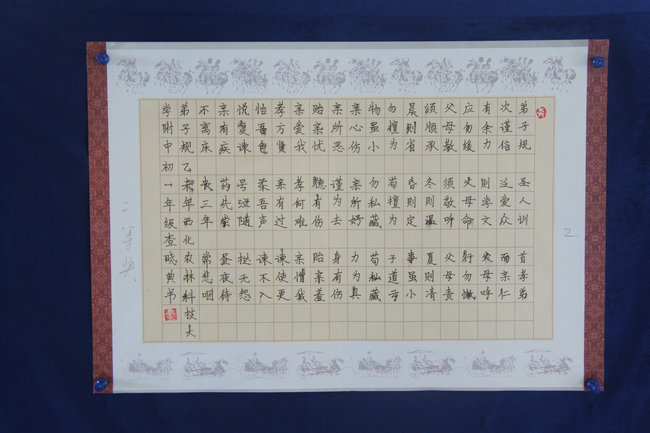 弟子规 圣人训 首孝弟
次谨信 泛爱众 而亲仁
有余力 则学文 父母呼
应勿缓 父母命 行勿懒
父母教 须敬听 父母责
须顺承 冬则温 夏则凊
晨则省 昏则定 事虽小
勿擅为 苟擅为 子道
物虽小 勿私藏 苟私藏
亲心伤 亲所好 力为具
亲所恶 谨为去 身有伤
贻亲忧 德有伤 贻亲羞
亲爱我 孝何难 亲憎我
孝方贤 亲有过 谏使更
怡吾色 柔吾声 谏不入
悦复谏 号泣随 挞无怨
亲有疾 药先尝 昼夜侍
不离床 丧三年 常悲咽
弟子规乙年西北农林科技大
学附中初一年级查晓典书
二等奖
2